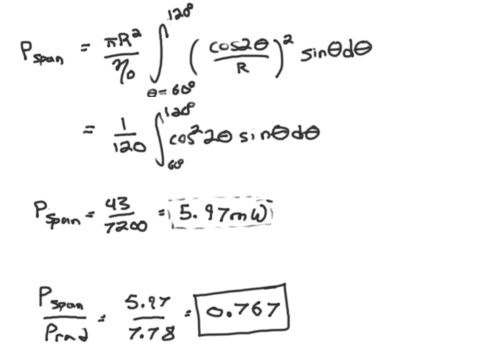 P_span = πR²/η₀ ∫_{θ=60°}^{120°} (cos2θ/R)² sinθdθ
= 1/120 ∫_{60°}^{120°} cos²2θ sinθdθ
P_span = 43/7200 = 5.97mW
P_span/P_rad = 5.97/7.78 = 0.767